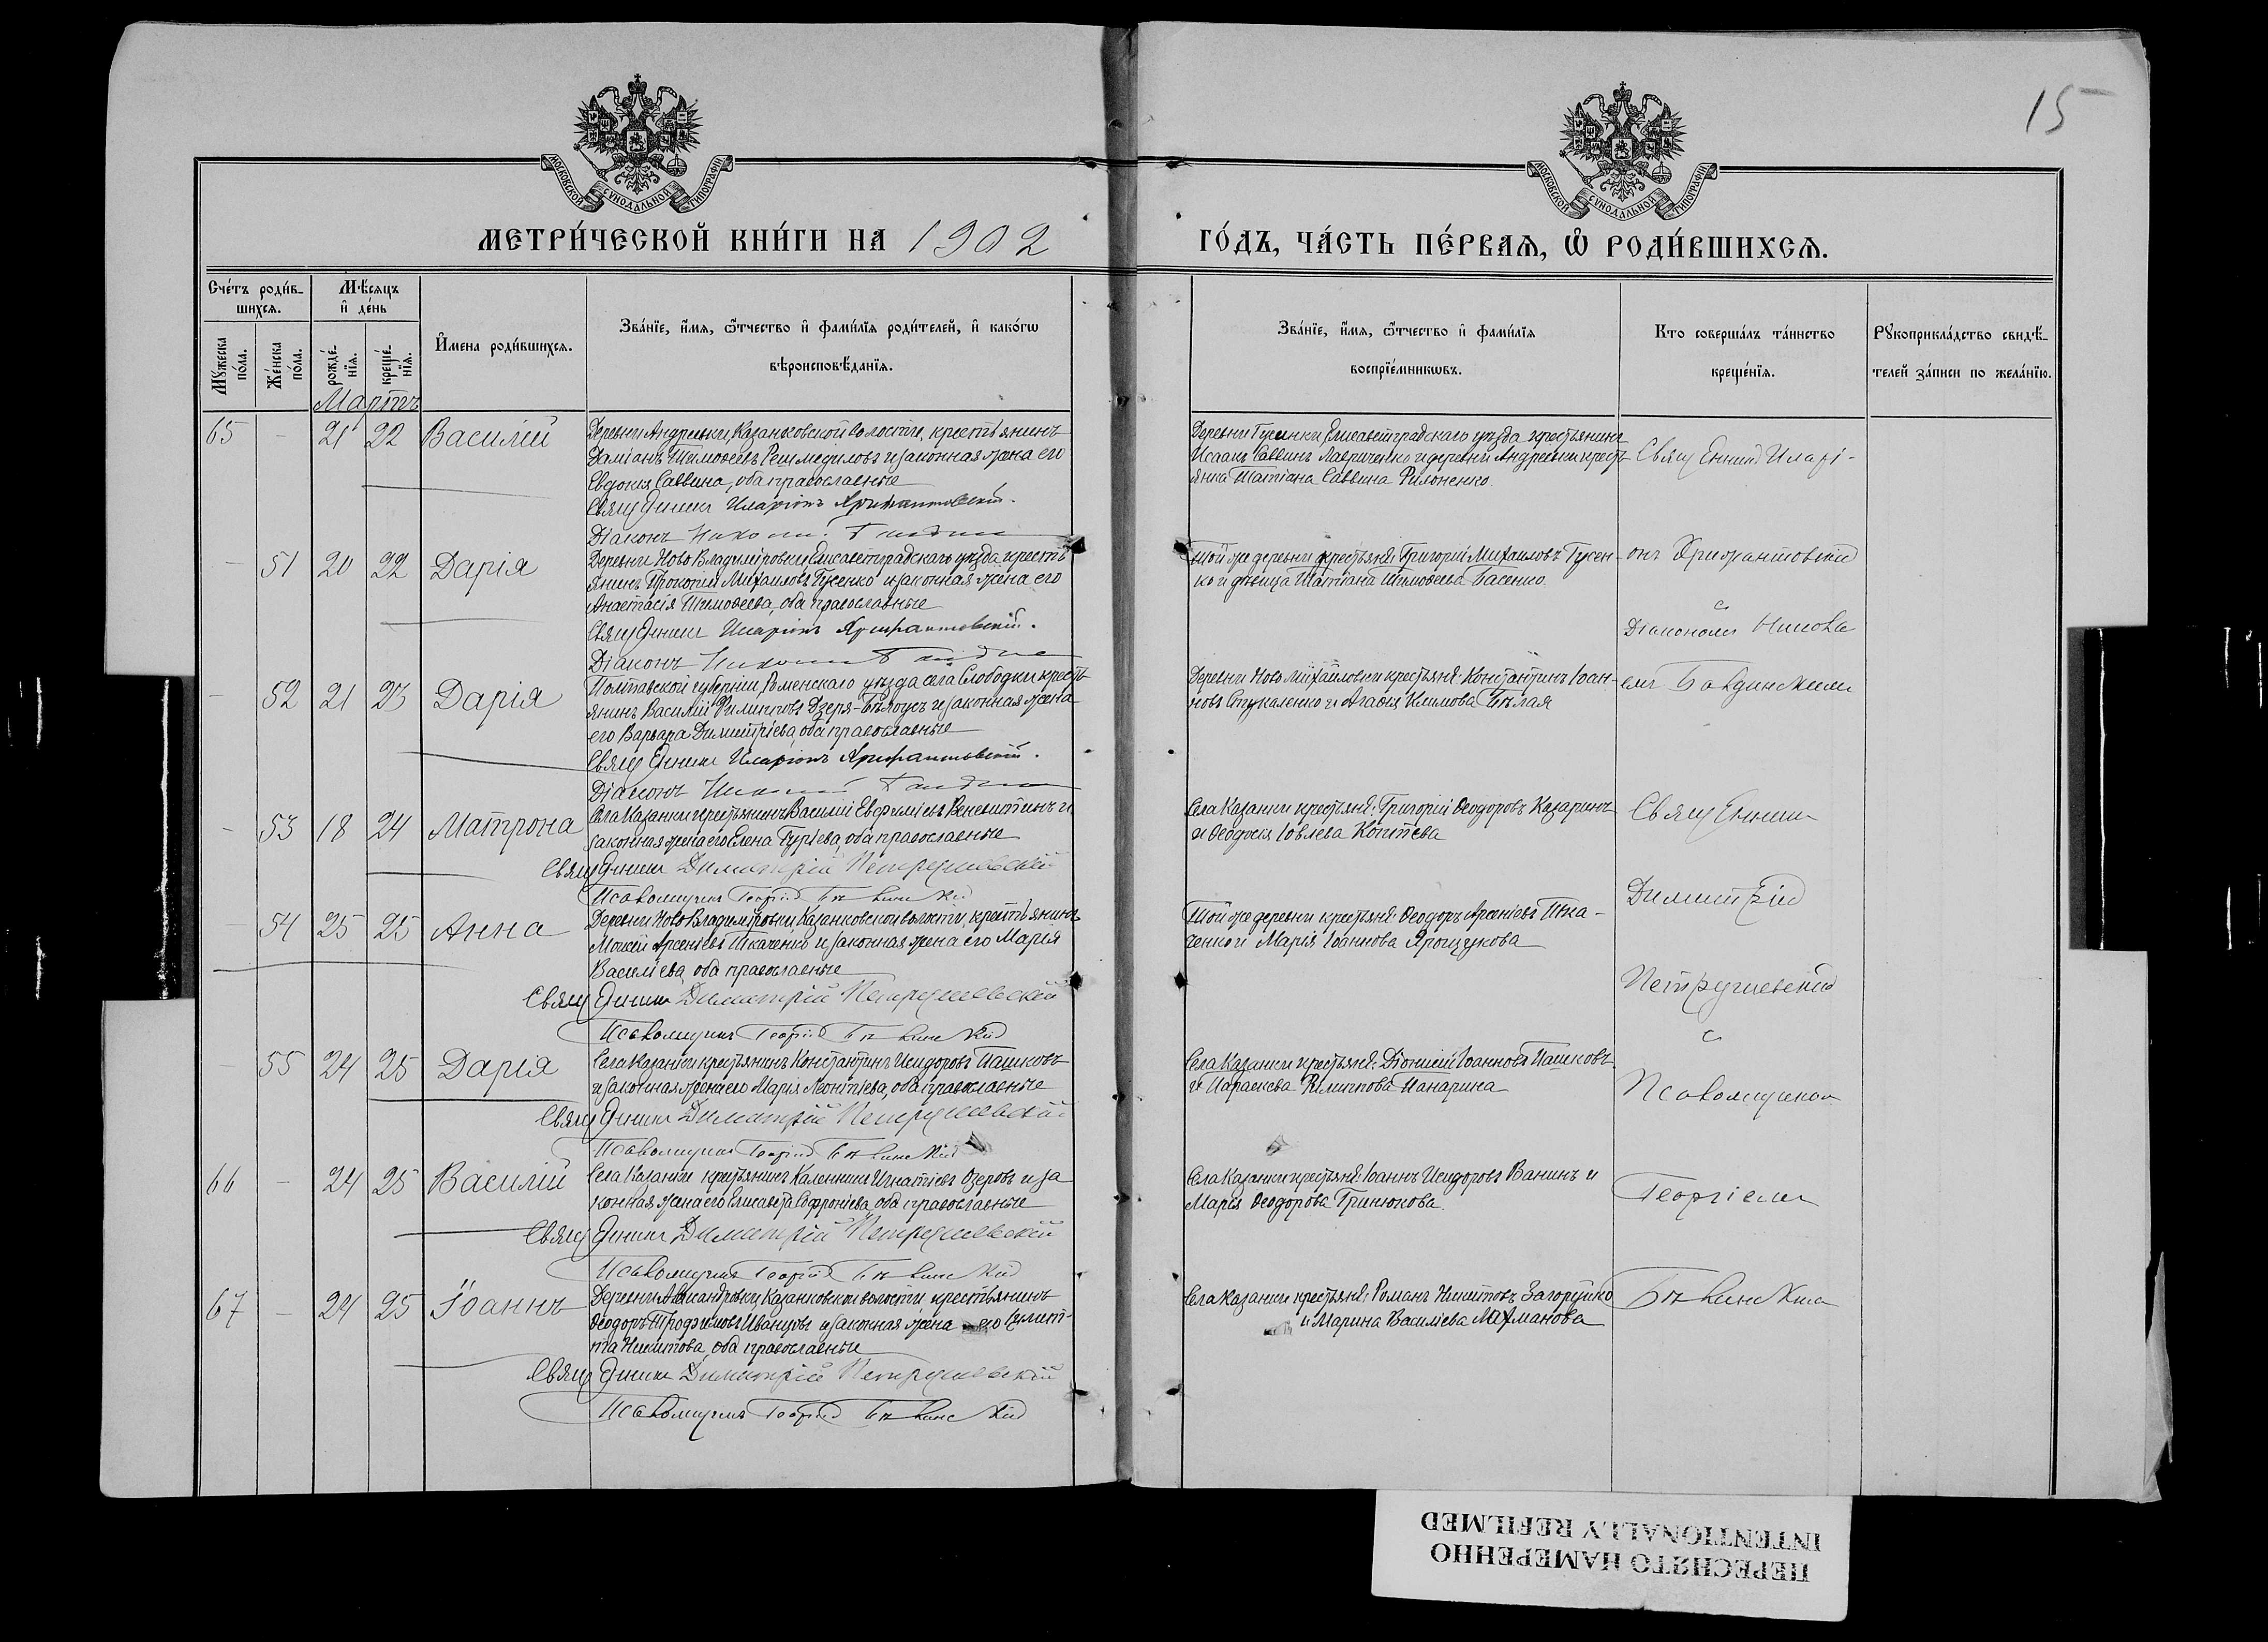 15
МОСКОВСКОЙ СѴНОДАЛЬНОЙ ТИПОГРАФІИ
МОСКОВСКОЙ СѴНОДАЛЬНОЙ ТИПОГРАФІИ
МЕТРИ́ЧЕСКОЙ КНИ́ГИ НА 1902
ГО́ДЪ, ЧА́СТЬ ПЕ́РВАѦ, Ѽ РОДИ́ВШИХСѦ.
Сче́тъ роди́в-
шихсѧ.
Мꙋ́жеска по́ла.
Же́нска по́ла.
Мѣ́сѧцъ
и҆ де́нь
рожде́-
нїѧ.
креще́-
нїѧ.
И҆мена̀ роди́вшихсѧ.
Зва́нїе, и҆́мѧ, ѻ҆́тчество и҆ фами́лїѧ роди́телей, и҆ како́гѡ
вѣроисповѣ́данїѧ.
Зва́нїе, и҆́мѧ, ѻ҆́тчество и҆ фами́лїѧ
воспрїе́мникѡвъ.
Кто̀ соверша́лъ та́инство
креще́нїѧ.
Рꙋкоприкла́дство свидѣ́-
телей за́писи по жела́нїю.
Мартъ
65 - 21 22 Василій
Деревни Андреевки, Казанковской волости, крестьянинъ
Даміанъ Тимоѳеевъ и законная жена его
Евдокія Саввина, оба православные
Священникъ Иларіонъ Хрисанфовскій.
Діаконъ
Деревни Гусенки Елисаветградскаго уѣзда крестьянинъ
Исаакъ Саввинъ Лавриченко и деревни Андреевки кресть-
янка Татіана Саввина Филоненко.
Священник Иларі-
- 51 20 22 Дарія
Деревни Ново Владиміровки Елисаветградскаго уѣзда кресть-
янинъ Прокопій Михаиловъ Гусенко и законная жена его
Анастасія Тимоѳеева, оба православные
Священникъ Иларіонъ Хрисанфовскій.
Діаконъ
Той же деревни крестьяне: Григорій Михаиловъ Гусен-
ко и дѣвица Татіана Тимоѳеева Басенко.
онъ Хрисанфовскій
с
Діакономъ Никола
- 52 21 23 Дарія
Полтавской губерніи, Роменскаго уѣзда села Слободки кресть-
янинъ Василій Филипповъ Дзеря-Бѣлоусъ и законная жена
его Варвара Димитріева, оба православные
Священникъ Иларіонъ Хрисанфовскій.
Діаконъ
Деревни Ново Михайловки крестьяне: Константинъ Іоан-
новъ Стукаленко и Агафія Климова Бѣлая
емъ
- 53 18 24 Матрона
Села Казанки крестьянинъ Василій Евфиміевъ Веневитинъ и
законная жена его Елена Гуріева, оба православные
Священникъ Димитрій Петрушевскій
Псаломщикъ Георгій
Села Казанки крестьяне: Григорій Ѳеодоровъ Казаринъ
и Ѳеодосія Іовлева Коптева
Священник
Димитрій
- 54 25 25 Анна
Деревни Ново Владиміровки Казанковской волости, крестьянинъ
Моисей Арсеніевъ Ткаченко и законная жена его Марія
Василіева, оба православные
Священникъ Димитрій Петрушевскій
Псаломщикъ Георгій
Той же деревни крестьяне: Ѳеодоръ Арсеніевъ Тка-
ченко и Марія Іоаннова Ярощукова
Петрушевскій
с
- 55 24 25 Дарія
Села Казанки крестьянинъ Константинъ Исидоровъ Пашковъ
и законная жена его Марія Леонтіева, оба православные
Священникъ Димитрій Петрушевскій
Псаломщикъ Георгій
Села Казанки крестьяне: Діонисій Іоанновъ Пашковъ
и Параскева Филиппова Панарина
Псаломщиком
66 - 24 25 Василій
Села Казанки крестьянинъ Калинникъ Игнатіевъ Озеровъ и за-
конная жена его Елисавета Софроніева, оба православные
Священникъ Димитрій Петрушевскій
Псаломщикъ Георгій
Села Казанки крестьяне: Іоаннъ Исидоровъ Ванинъ и
Марія Ѳеодорова Гринюкова.
Георгіемъ
67 - 24 25 Іоаннъ
Деревни Александровки, Казанковской волости, крестьянинъ
Ѳеодоръ Трофимовъ Иванцовъ и законная жена его Іулит-
та Никитова, оба православные
Священникъ Димитрій Петрушевскій
Псаломщикъ Георгій
Села Казанки крестьяне: Романъ Никитовъ Загорулько
и Марина Василіева Махманова
ПЕРЕСНЯТО НАМЕРЕННО
INTENTIONALLY REFILMED